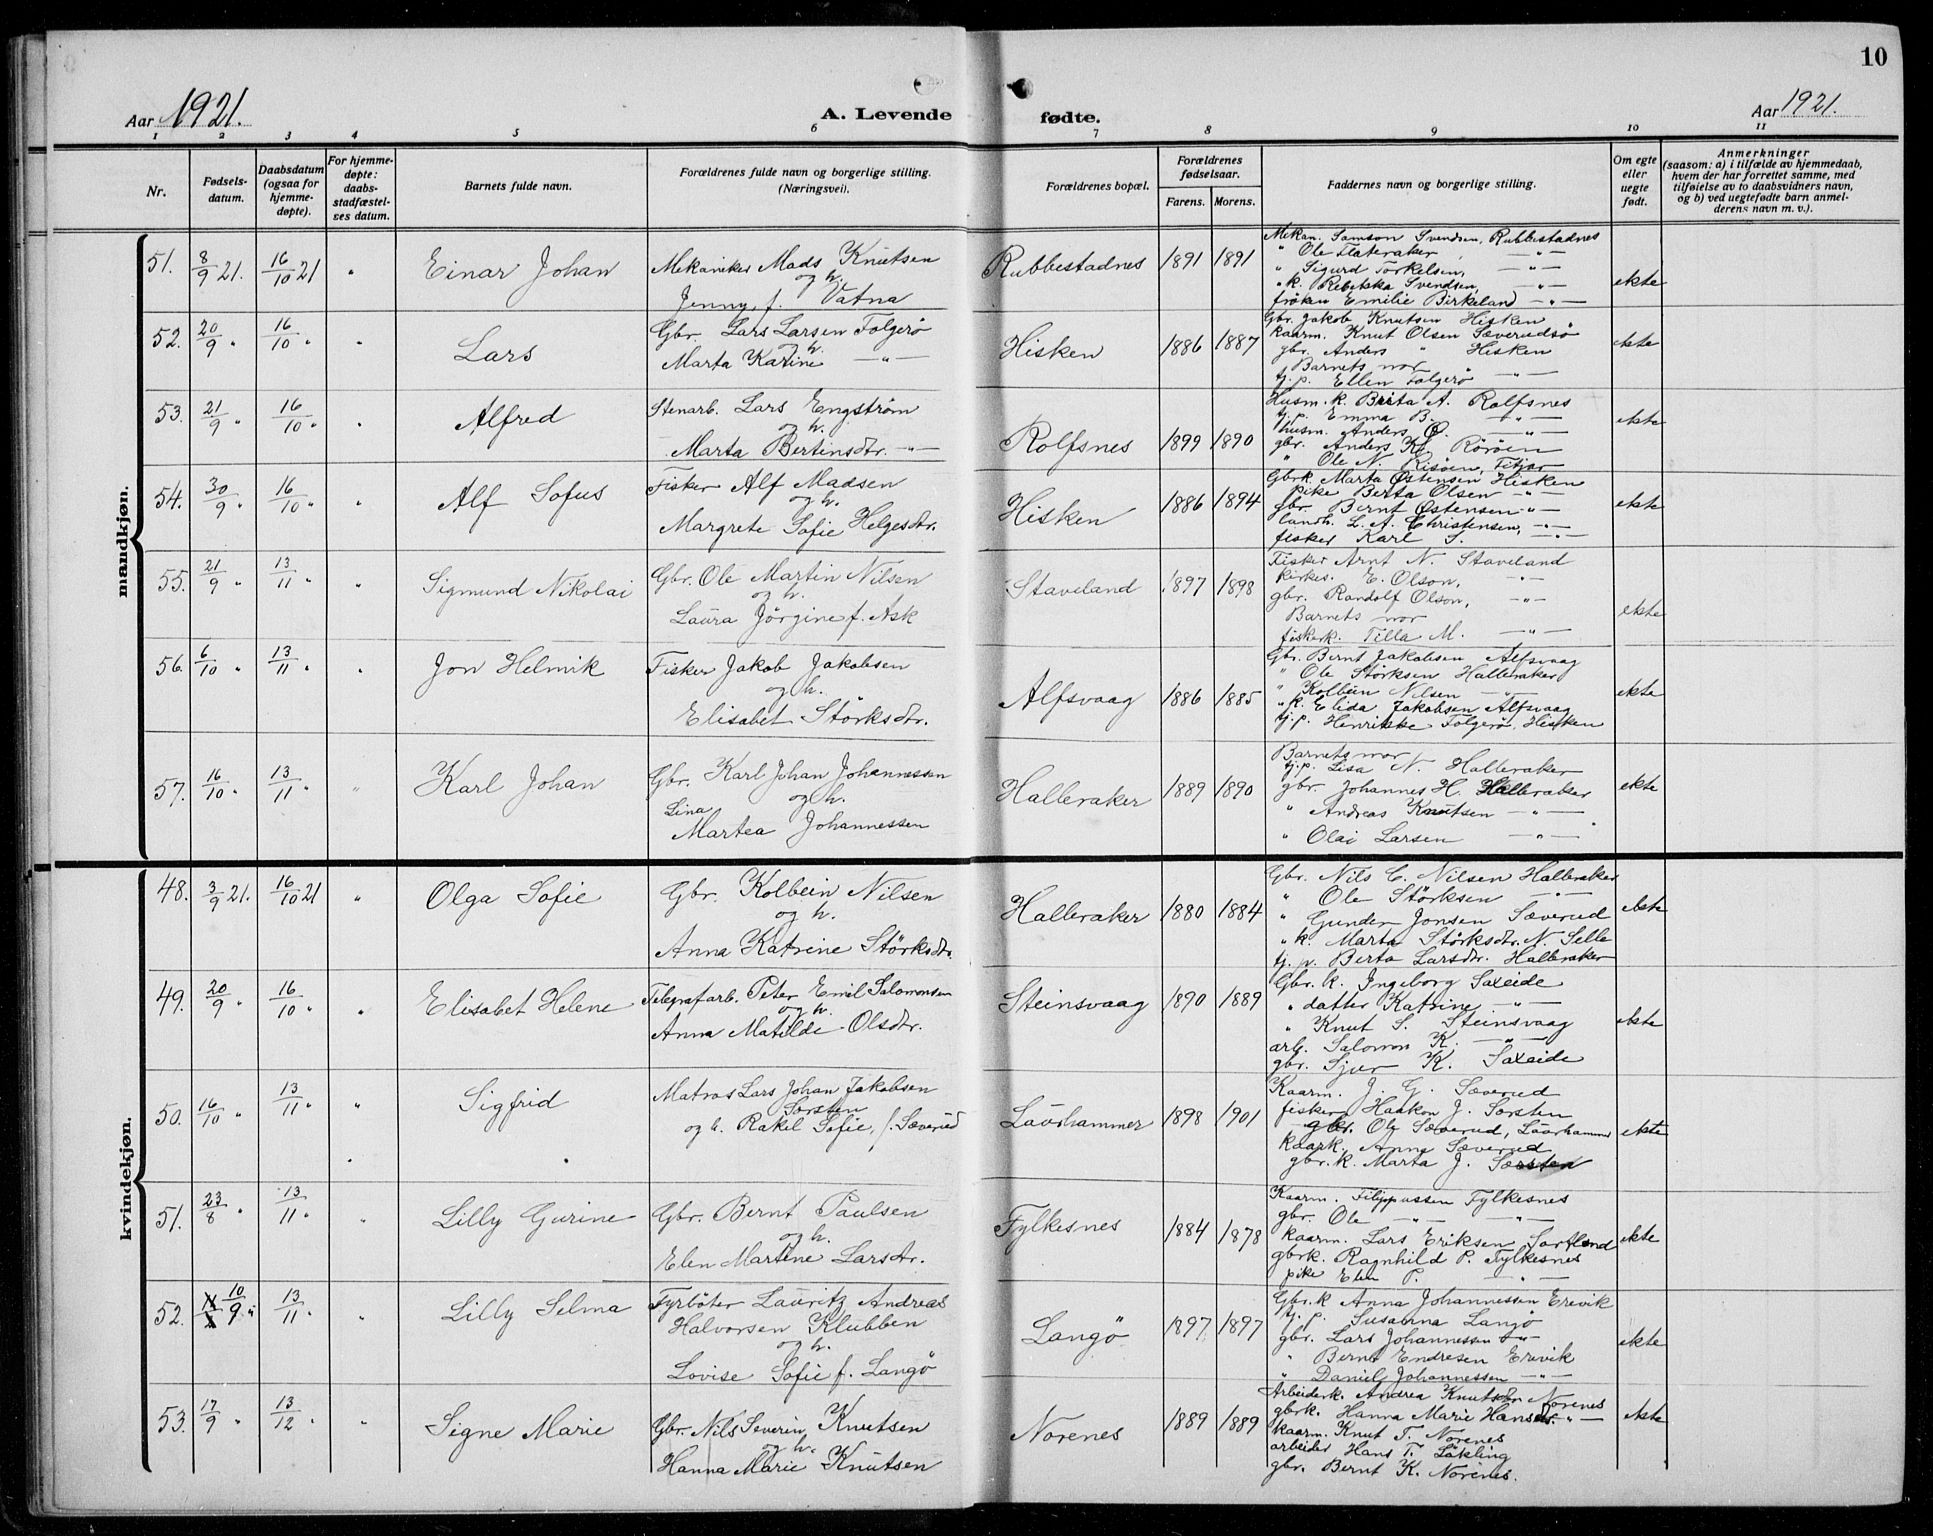 10
Aar 1921.
A. Levende fødte.
Aar 1921.
1 2 3 4 5 6 7 8 9 10 11
Nr.
Fødsels-
datum.
Daabsdatum
(ogsaa for
hjemme-
døpte).
For hjemme-
døpte:
daabs-
stadfæstel-
ses datum.
Barnets fulde navn.
Forældrenes fulde navn og borgerlige stilling.
(Næringsvei).
Forældrenes bopæl.
Forældrenes
fødselsaar.
Farens. Morens.
Faddernes navn og borgerlige stilling.
Om egte
eller
uegte
født.
Anmerkninger
(saasom: a) i tilfælde av hjemmedaab,
hvem der har forrettet samme, med
tilføielse av to daabsvidners navn,
og b) ved uegtefødte barn anmel-
derens navn m. v.).
mandkjøn.
51. 8/9 21. 16/10 21 " Einar Johan
Mekaniker Mads Knutsen
og h.
Jenny, f. Vatna
Rubbestadnes 1891 1891
Mekan. Samson Svendsen, Rubbestadnes
" Ole Flateraker, —"—
" Sigurd Torkelsen, —"—
" k. Rebekka Svendsen, —"—
frøken Emilie Birkeland —"—
ekte
52. 20/9 " 16/10 " " Lars
Gbr. Lars Larsen Folgerö
og h.
Marta Katrine —"—
Hisken 1886 1887
Gbr. Jakob Knutsen Hisken
kaarm. Knut Olsen Sæverudsö
gbr. Anders " Hisken
Barnets mor "
tj. p. Ellen Folgerö —"—
ekte
53. 21/9 " 16/10 " " Alfred
Stenarb. Lars Engström
og h.
Marta Bertinsdtr. —"—
Rolfsnes 1899 1890
Husm. k. Brita A. Rolfsnes
tj. p. Emma B. —"—
husm. Anders Ö. —"—
gbr. Anders K. Röröen
" Ole N. Risöen, Fitjar
ekte
54. 30/9 " 16/10 " " Alf Sofus
Fisker Alf Madsen
og h.
Margrete Sofie Helgesdtr.
Hisken 1886 1894
Gbrk. Marta Östensen Hisken
pike Berta Olsen —"—
gbr. Bernt Östensen —"—
landh. L. A. Christensen, —"—
fisker Karl S. —"—
ekte
55. 21/9 " 13/11 " " Sigmund Nikolai
Gbr. Ole Martin Nilsen
og h.
Laura Jörgine f. Ask
Staveland 1897 1898
Fisker Arnt N. Staveland
kirkes. E. Olson, —"—
gbr. Randolf Olson, —"—
Barnets mor
fiskerk. Tilla M. —"—
ekte
56. 6/10 " 13/11 " " Jon Helmik
Fisker Jakob Jakobsen
og h.
Elisabet Störksdtr.
Alfsvaag 1886 1885
Gbr. Bernt Jakobsen Alfsvaag
" Ole Störksen Halleraker
" Kolbein Nilsen —"—
" k. Elida Jakobsen Alfsvaag
tj. p. Henrikke Folgerö, Hisken
ekte
57. 16/10 " 13/11 " " Karl Johan
Gbr. Karl Johan Johannessen
og h.
Lina
Martea Johannessen
Halleraker 1889 1890
Barnets mor
tj. p. Lisa N. Halleraker
gbr. Johannes H. Halleraker
" Andreas Knutsen —"—
" Olai Larsen —"—
ekte
kvindekjøn.
48. 3/9 21. 16/10 21 " Olga Sofie
Gbr. Kolbein Nilsen
og h.
Anna Katrine Störksdtr.
Halleraker 1880 1884
Gbr. Nils C. Nilsen Halleraker
" Ole Störksen —"—
" Gunder Jonsen Sæverud
" k. Marta Störksdtr. N. Selle
tj. p. Berta Larsdtr. Halleraker
ekte
49. 20/9 " 16/10 " " Elisabet Helene
Telegrafarb. Peter Emil Salomonsen
og h.
Anna Matilde Olsdtr.
Steinsvaag 1890 1889
Gbr. k. Ingeborg Saxeide
" datter Katrine —"—
" Knut S. Steinsvaag
arb. Salomon K. —"—
gbr. Sjur K. Saxeide
ekte
50. 16/10 " 13/11 " " Sigfrid
Matros Lars Johan Jakobsen
Sorsten
og h. Rakel Sofie, f. Sæverud
Laurhammer 1898 1901
Kaarm. J. G. Sæverud
fisker Haakon J. Sorsten
gbr. Ole Sæverud, Laurhammer
kaark. Anna Sæverud
gbr. k. Marta J. Sorsten
ekte
51. 23/8 " 13/11 " " Lilly Gurine
Gbr. Bernt Paulsen
og h.
Elen Martine Larsdtr.
Fylkesnes 1884 1878
Kaarm. Filippussen Fylkesnes
gbr. Ole —"— —"—
kaarm. Lars Eriksen Sortland
gbrk. Ragnhild P. Fylkesnes
pike Elen P. —"—
ekte
52. 10/9 " 13/11 " " Lilly Selma
Fyrböter Lauritz Andreas
Halvorsen Klubben
og h.
Lovise Sofie f. Langö
Langö 1897 1897
Gbr. k Anna Johannessen Erevik
tj. p. Susanna Langö
gbr. Lars Johannessen —"—
" Bernt Endresen Erevik
" Daniel Johannessen —"—
ekte
53. 17/9 " 13/12 " " Signe Marie
Gbr. Nils Severin Knutsen
og h.
Hanna Marie Knutsen
Norenes 1889 1889
Arbeiderk. Andrea Knutsdtr Norenes
gbrk. Hanna Marie Hansdtr. —"—
kaarm. Knut T. Norenes
arbeider Hans T. Låkling
gbr. Bernt K. Norenes.
ekte